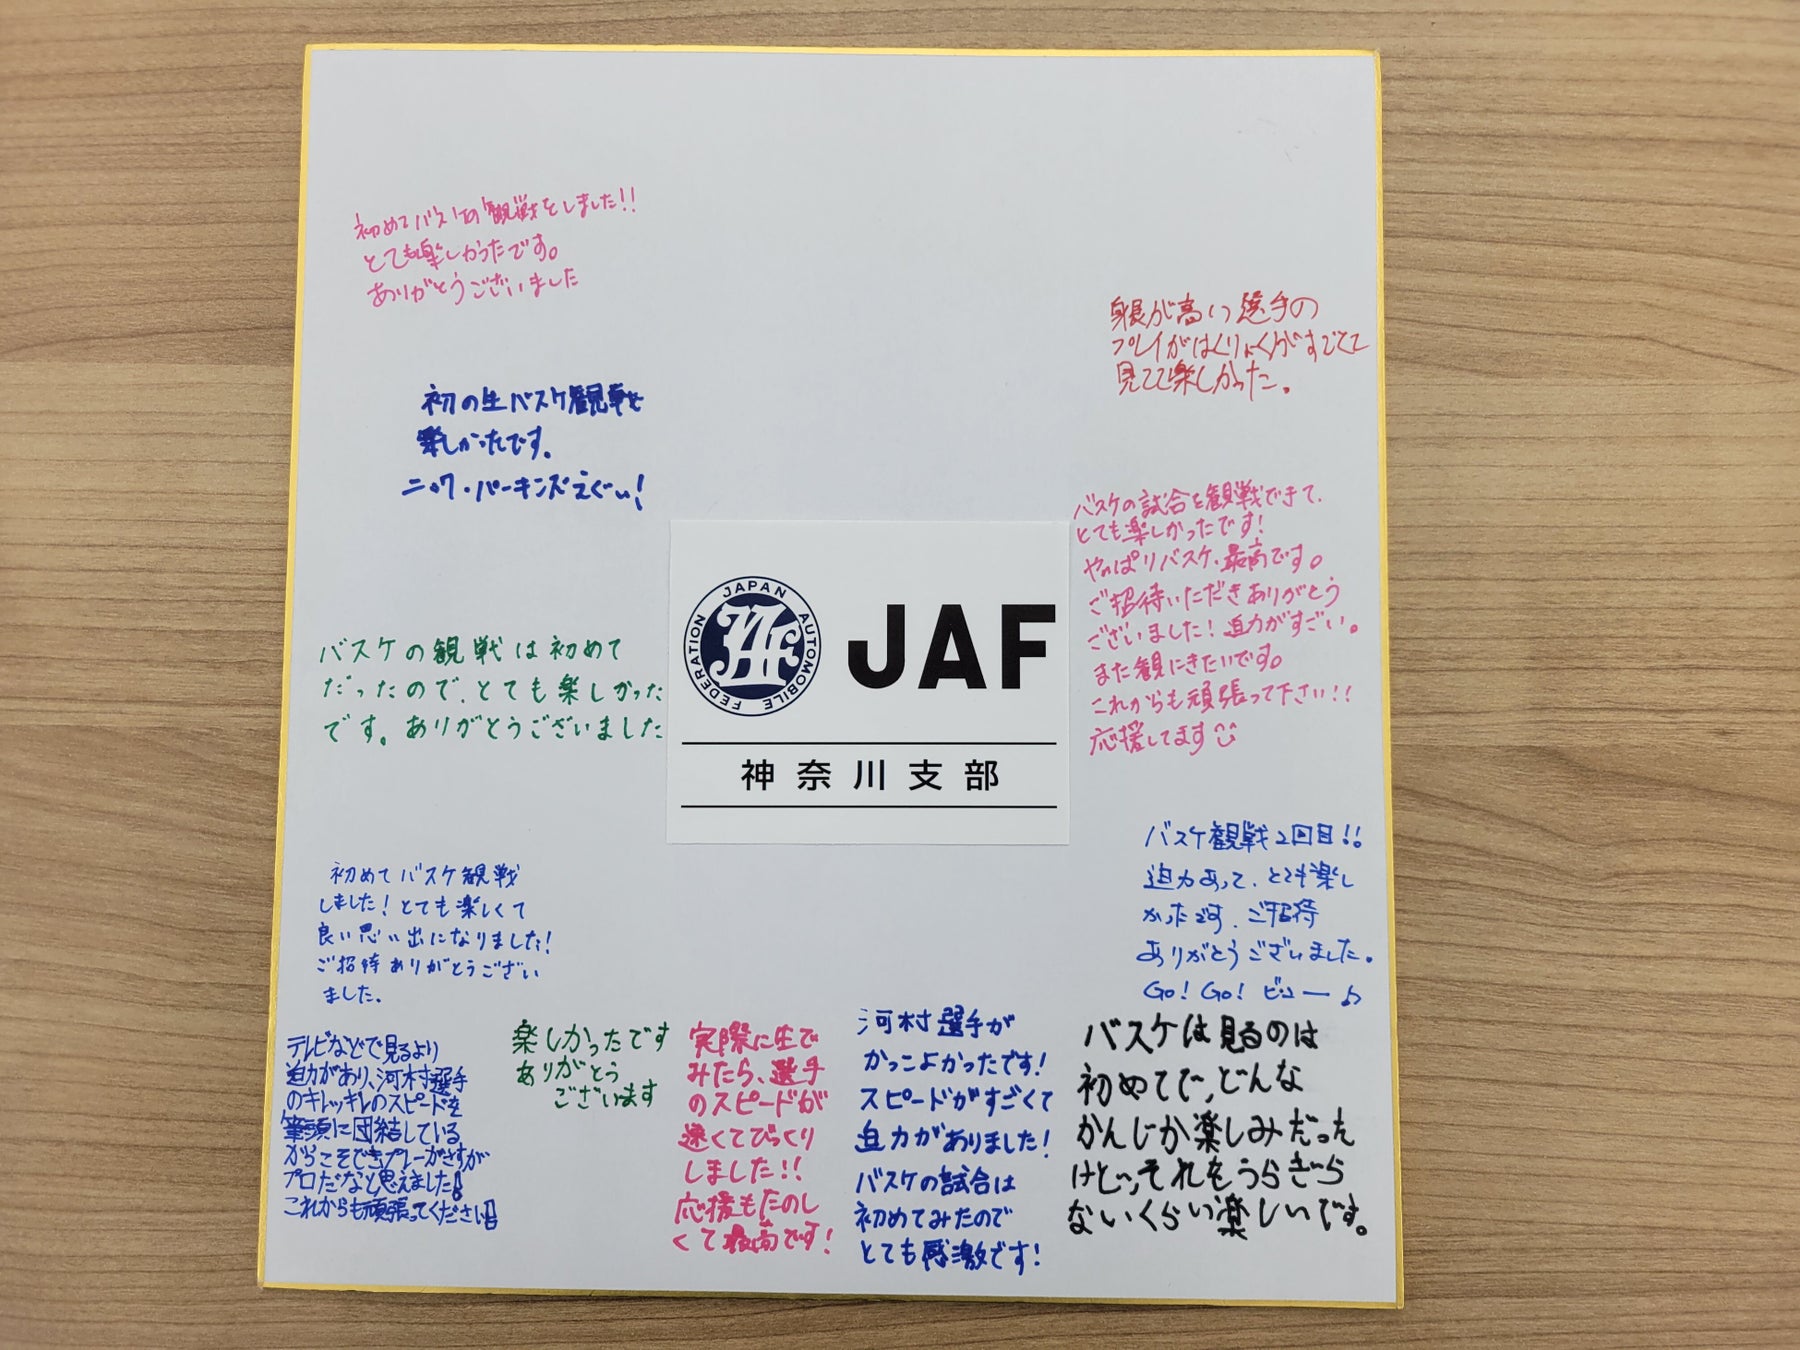 初めてバスケの観戦をしました!!
とても楽しかったです。
ありがとうございました
身長が高い選手の
プレイがはくりょくがすごくて
見てて楽しかった。
初の生バスケ観戦を
楽しかったです。
ニック・パーキンズえぐい!
バスケの試合を観戦できて、
とても楽しかったです!
やっぱりバスケ、最高です。
ご招待いただきありがとう
ございました!迫力がすごい。
また観にきたいです。
これからも頑張って下さい!!
応援してます
JAPAN AUTOMOBILE FEDERATION
JAF
神奈川支部
バスケの観戦は初めて
だったので、とても楽しかった
です。ありがとうございました
初めてバスケ観戦
しました!とても楽しくて
良い思い出になりました!
ご招待ありがとうござい
ました。
バスケ観戦2回目!!
迫力あって、とても楽し
かったです、ご招待
ありがとうございました。
Go! Go! ビュー♪
テレビなどで見るより
迫力があり、河村選手
のキレッキレのスピードを
筆頭に団結している
からこそできプレーがさすが
プロだなと思えました!
これからも頑張ってください!
楽しかったです
ありがとう
ございます
実際に生で
みたら、選手
のスピードが
速くてびっくり
しました!!
応援もたのし
くて最高です!
河村選手が
かっこよかったです!
スピードがすごくて
迫力がありました!
バスケの試合は
初めてみたので
とても感激です!
バスケは見るのは
初めてで、どんな
かんじか楽しみだった
けど、それをうらぎら
ないくらい楽しいです。